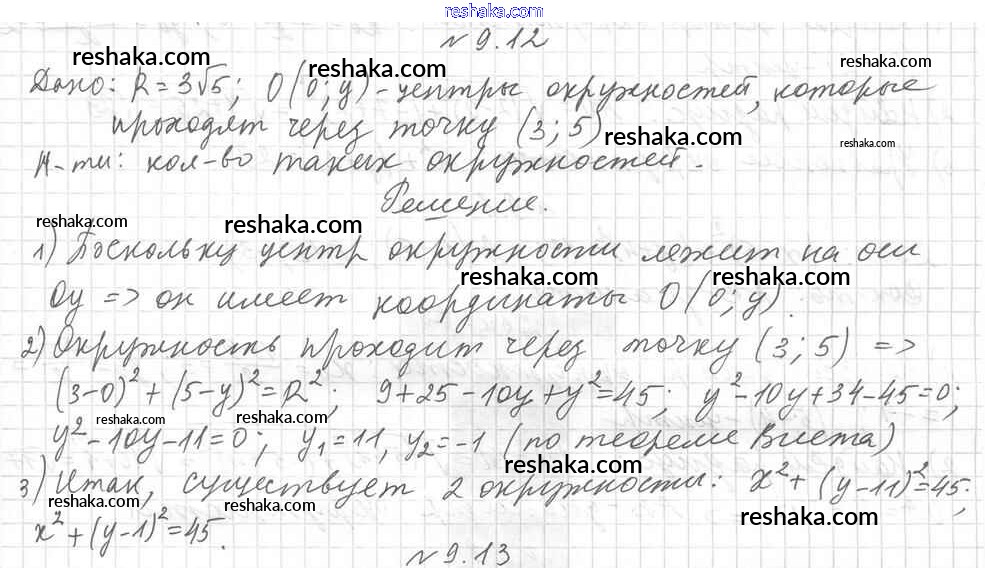 reshaka.com
№ 9.12
reshaka.com
Дано: R = 3√5; O(0; y) - центры окружностей, которые
reshaka.com
reshaka.com
проходят через точку (3; 5)
reshaka.com
reshaka.com
Н-ти: кол-во таких окружностей.
Решение.
reshaka.com
reshaka.com
1) Поскольку центр окружности лежит на оси
reshaka.com
reshaka.com
Oy => он имеет координаты O(0; y).
2) Окружность проходит через точку (3; 5) =>
(3-0)² + (5-y)² = R²; 9 + 25 - 10y + y² = 45; y² - 10y + 34 - 45 = 0;
reshaka.com
reshaka.com
y² - 10y - 11 = 0; y₁ = 11, y₂ = -1 (по теореме Виета)
reshaka.com
3) Итак, существует 2 окружности: x² + (y - 11)² = 45;
reshaka.com
reshaka.com
reshaka.com
x² + (y - 1)² = 45.
№ 9.13